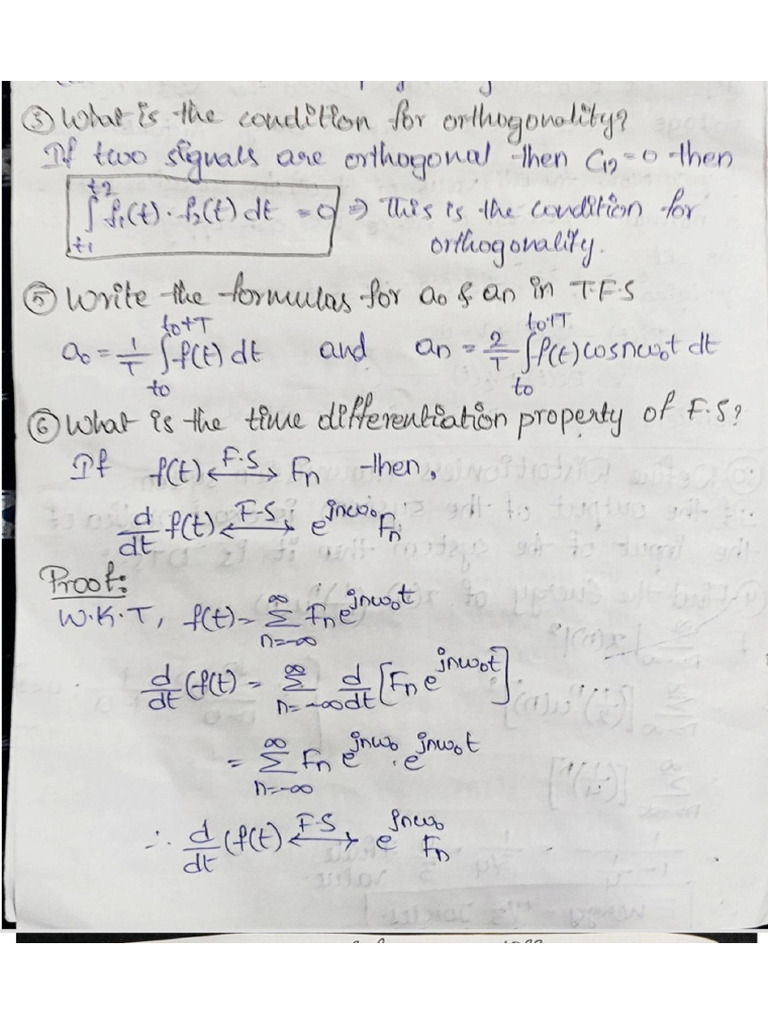 ③ What is the condition for orthogonality?
If two signals are orthogonal then C₁₂=0 then
∫_{t1}^{t2} f₁(t)·f₂(t) dt = 0 ⇒ This is the condition for
orthogonality.
⑤ Write the formulas for a₀ & an in T.F.S
a₀ = 1/T ∫_{to}^{to+T} f(t) dt and an = 2/T ∫_{to}^{to+T} f(t) cosnω₀t dt
⑥ What is the time differentiation property of F.S?
If f(t) ←F.S→ Fn then,
d/dt f(t) ←F.S→ e^{jnω₀} Fn
Proof:
W.K.T, f(t) = Σ_{n=-∞}^{∞} Fn e^{jnω₀t}
d/dt (f(t) = Σ_{n=-∞}^{∞} d/dt [Fn e^{jnω₀t}]
= Σ_{n=-∞}^{∞} Fn e^{jnω₀} . e^{jnω₀t}
∴ d/dt (f(t) ←F.S→ e^{jnω₀} Fn